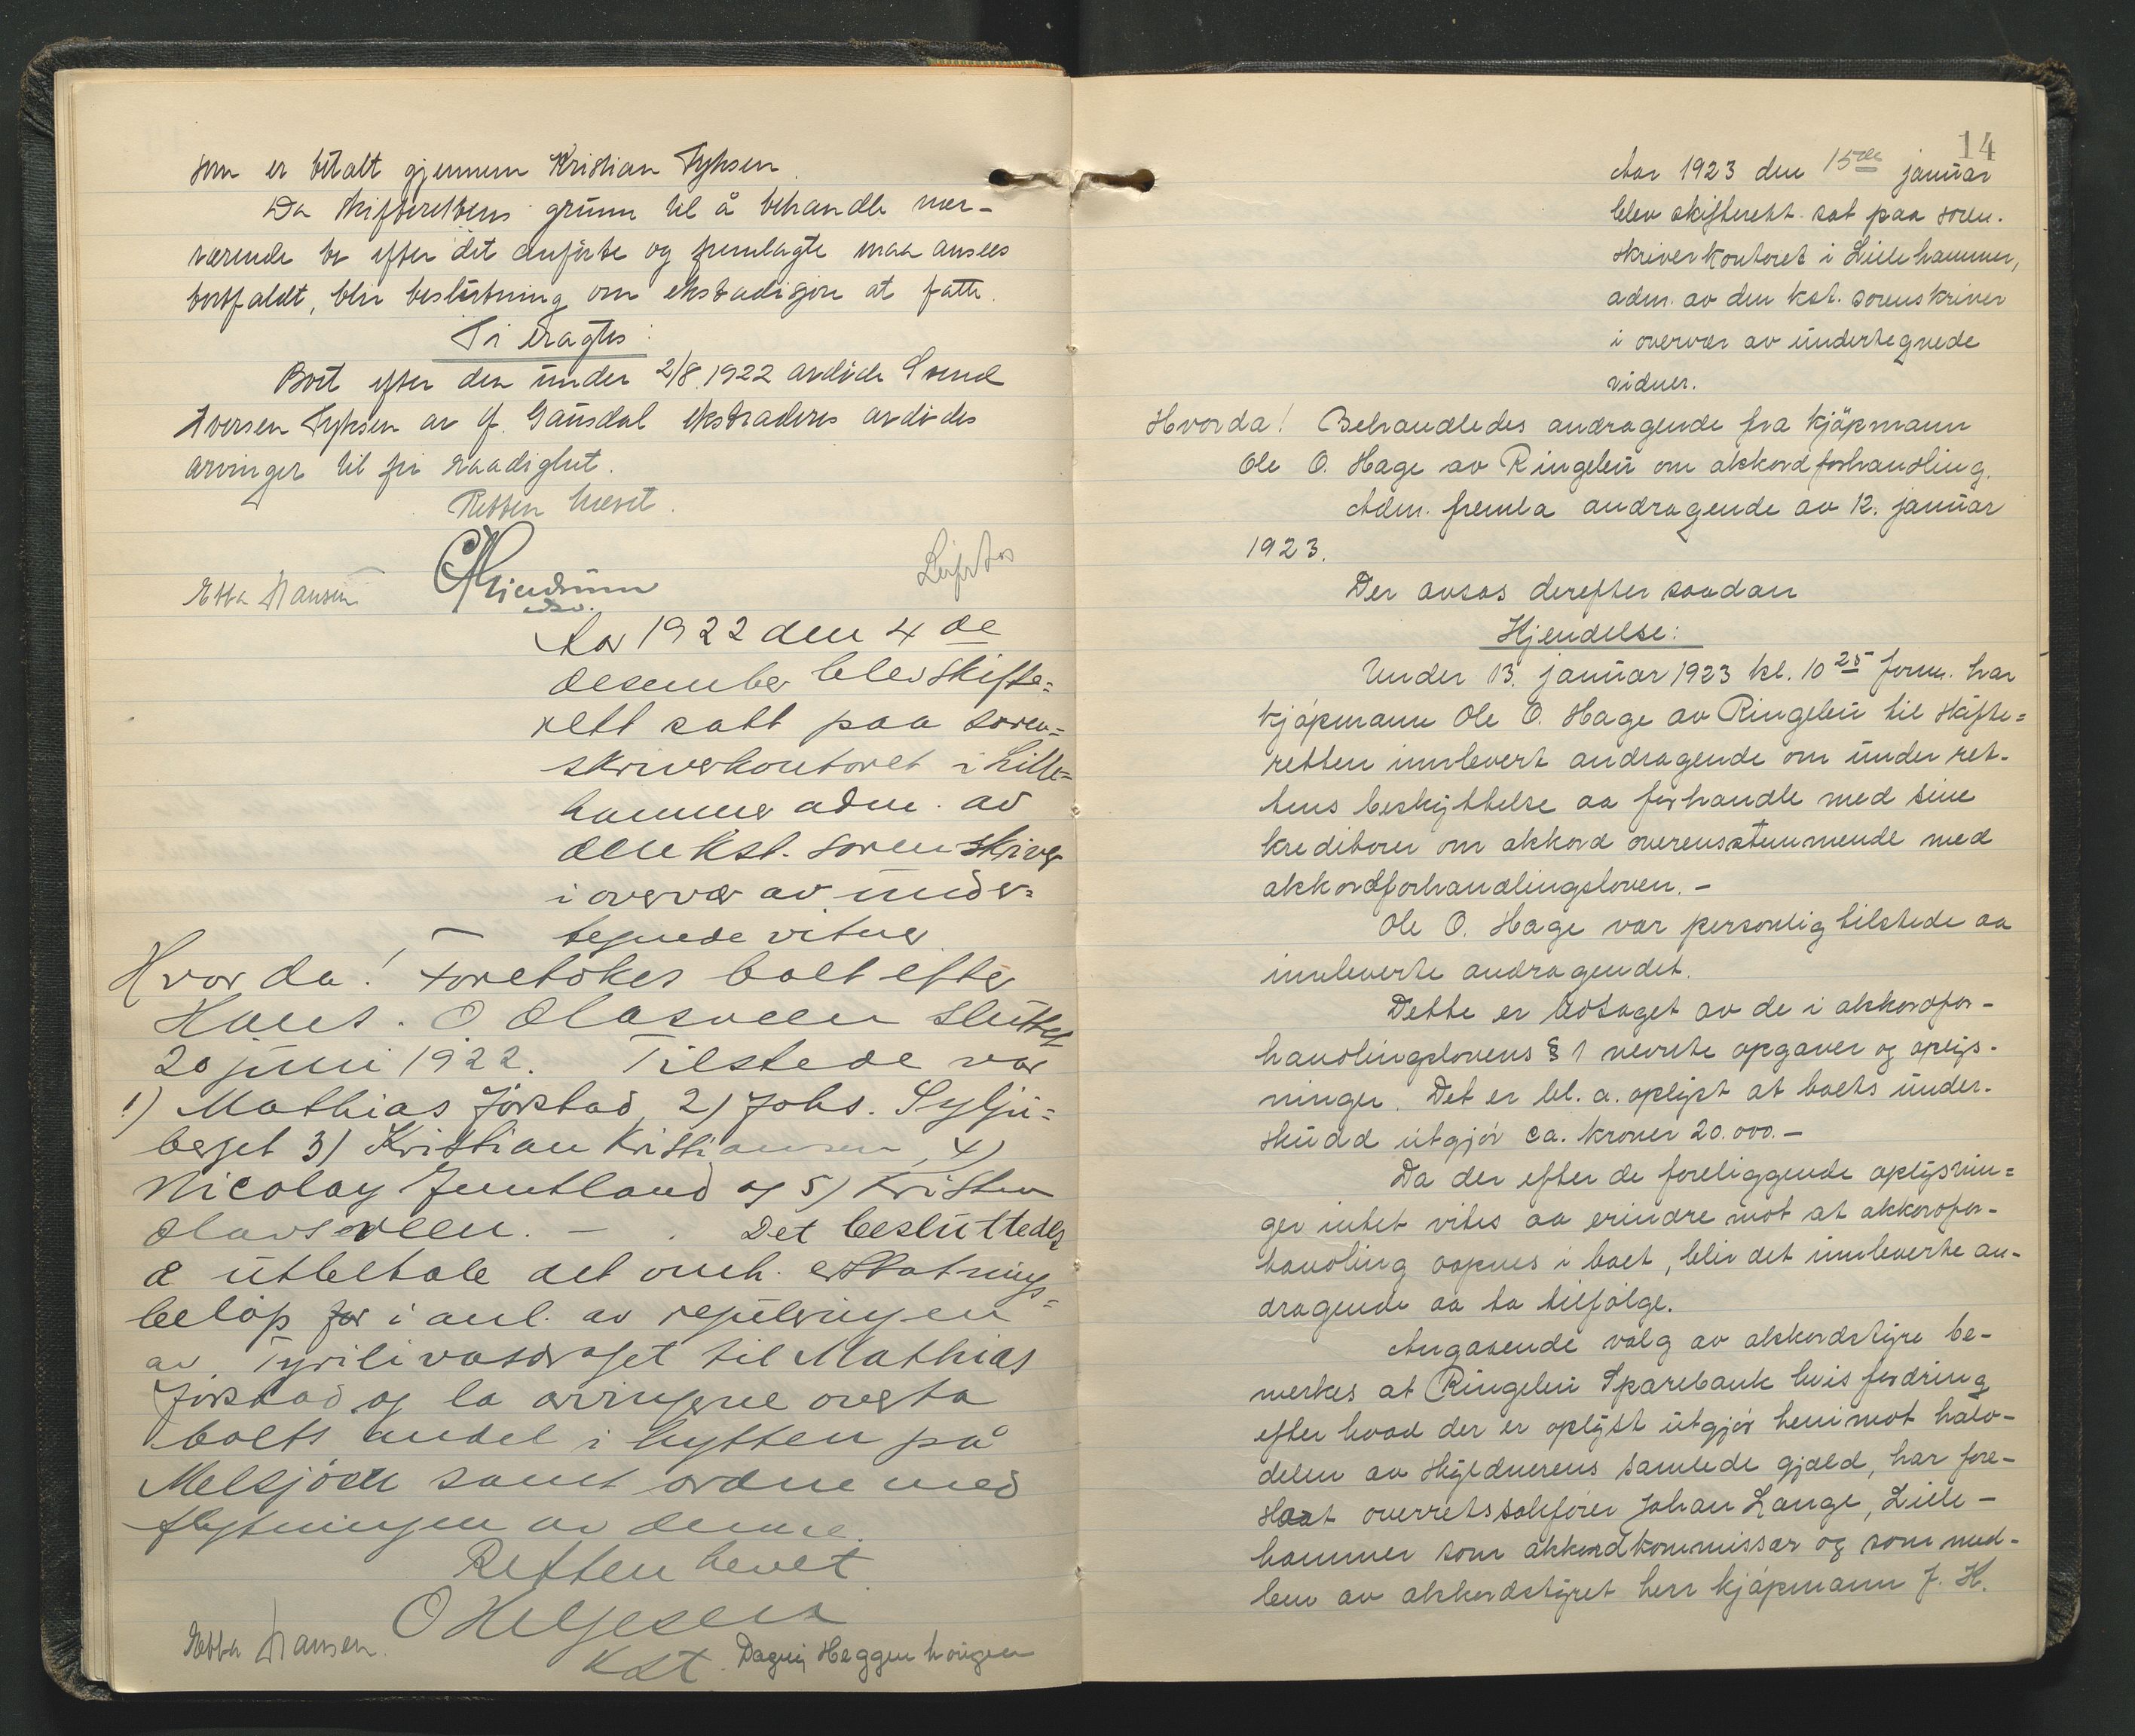 som er betalt gjennem Kristian Fyksen.
Da skifterettens grunn til å behandle nær-
værende bo efter det anførte og fremlagte maa ansees
bortfaldt, blir beslutning om ekstradisjon at fatte.
Ti eragtes:
Boet efter den under 2/8. 1922 avdøde Svend
Iversen Fyksen av Ø. Gausdal ekstraderes avdødes
arvinger til fri raadighet.
Retten hævet.
Ebba Hansen
Aar 1922 den 4de
desember blev skifte=
rett satt paa soren=
skriverkontoret i Lille=
hammer adm. av
den kst. sorenskriver
i overvær av under=
tegnede vitner
Hvorda! Foretokes boet efter
Hans. O Olasveen sluttet
20 juni 1922. Tilstede var
1) Mathias Jørstad, 2) Johs. Sylju=
berget 3) Kristian Kristiansen, 4)
Nicolay Jemtland og 5) Kristen
Olavsveen. — . Det besluttedes
å utbetale det omh. erstatnings=
beløp for i anl. av reguleringen
av Tyrilivasdraget til Mathias
Jørstad og la arvingene overta
boets andel i hytten på
Melsjøen samt ordne med
flytningen av denne.
Retten hevet.
O Helgesen
kst.
Ebba Hansen. Dagny Heggenhougen
14
Aar 1923 den 15de januar
blev skifterett sat paa soren.
skriverkontoret i Lillehammer,
adm. av den kst. sorenskriver
i overvær av undertegnede
vidner.
Hvorda! Behandledes andragende fra kjøpmann
Ole O. Hage av Ringebu om akkordforhandling.
Adm. fremla andragende av 12. januar
1923.
Der avsas derefter saadan
Kjendelse:
Under 13. januar 1923 kl. 10 25 form. har
kjøpmann Ole O. Hage av Ringebu til skifte=
retten innlevert andragende om under ret-
tens beskyttelse aa forhandle med sine
kreditorer om akkord overensstemmende med
akkordforhandlingsloven. —
Ole O. Hage var personlig tilstede aa
innleverte andragendet.
Dette er ledsaget av de i akkordfor-
handlingslovens § 1 nevnte opgaver og oplys-
ninger. Det er bl. a. oplyst at boets under-
skudd utgjør ca. kroner 20.000. —
Da der efter de foreliggende oplysnin=
ger intet vites aa erindre mot at akkordfor-
handling aapnes i boet, blir det innleverte an-
dragende aa ta tilfølge.
Angaaende valg av akkordstyre be-
merkes at Ringebu Sparebank hvis fordring
efter hvad der er oplyst utgjør henimot halv-
delen av skyldnerens samlede gjæld, har fore-
slaat overretssakfører Johan Lange, Lille-
hammer som akkordkommissær og som med-
lem av akkordstyret herr kjøpmann J. H.